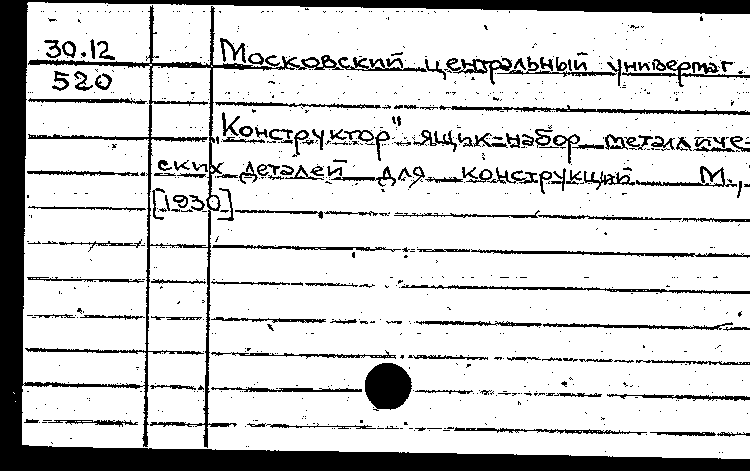 30.12
520
Московский центральный универмаг.
"Конструктор" ящик=набор металличе=
ских деталей для конструкций. М.,
[1930]